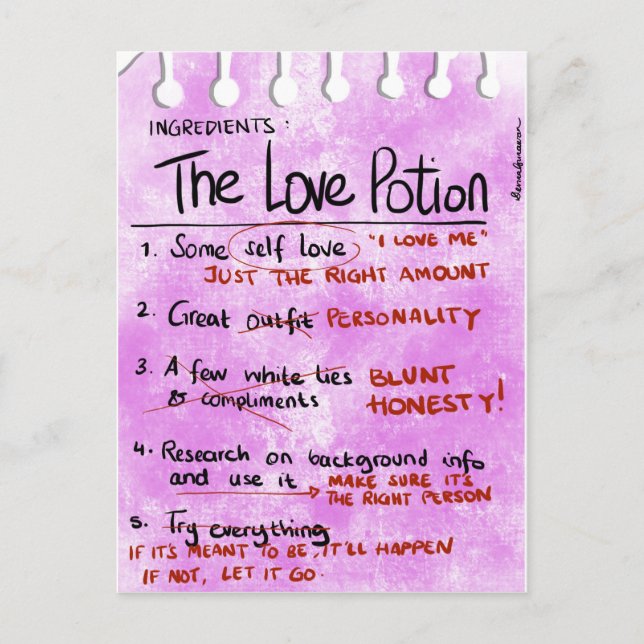 INGREDIENTS :
The Love Potion
1. Some self love "I LOVE ME"
JUST THE RIGHT AMOUNT
2. Great outfit PERSONALITY
3. A few white lies BLUNT
& compliments HONESTY!
4. Research on background info
and use it MAKE SURE IT'S
THE RIGHT PERSON
5. Try everything
IF IT'S MEANT TO BE, IT'LL HAPPEN
IF NOT, LET IT GO.